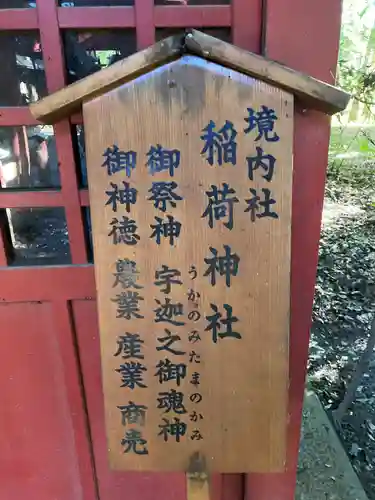 境内社
稲荷神社
御祭神 宇迦之御魂神
うかのみたまのかみ
御神徳 農業 産業 商売